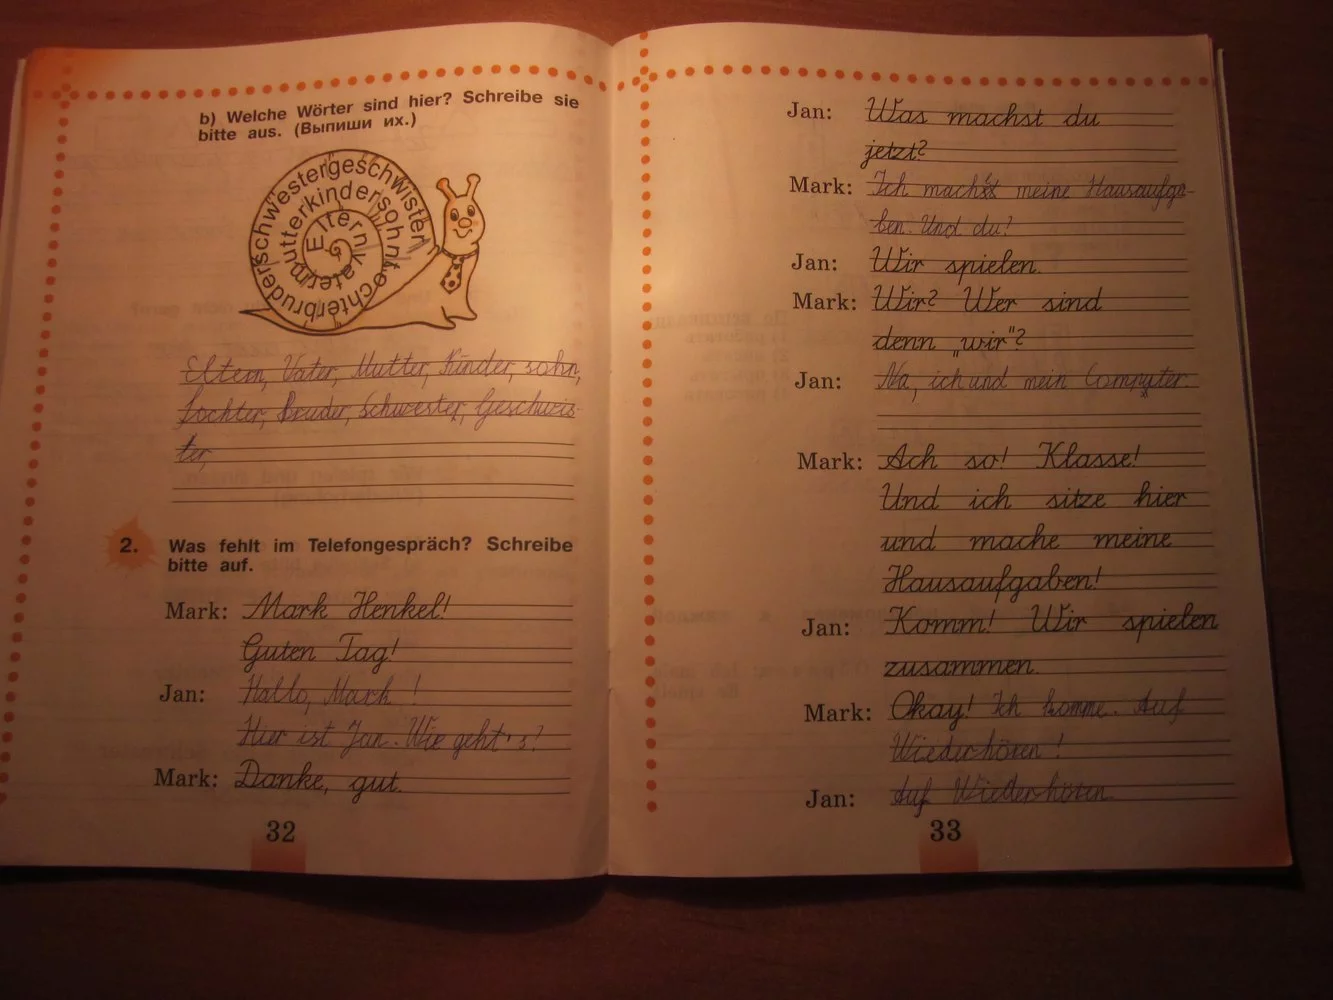 b) Welche Wörter sind hier? Schreibe sie
bitte aus. (Выпиши их.)
Elternvatermutterkindersohntochterbruderschwestergeschwister
Eltern, Vater, Mutter, Kinder, sohn,
Tochter, Bruder, Schwester, Geschwis-
ter,
2. Was fehlt im Telefongespräch? Schreibe
bitte auf.
Mark: Mark Henkel!
Guten Tag!
Jan: Hallo, Mark!
Hier ist Jan. Wie geht's?
Mark: Danke, gut.
32
Jan: Was machst du
jetzt?
Mark: Ich mache meine Hausaufga-
ben. Und du?
Jan: Wir spielen.
Mark: Wir? Wer sind
denn „wir"?
Jan: Na, ich und mein Computer.
Mark: Ach so! Klasse!
Und ich sitze hier
und mache meine
Hausaufgaben!
Jan: Komm! Wir spielen
zusammen.
Mark: Okay! Ich komme. Auf
Wiederhören!
Jan: Auf Wiederhören.
33